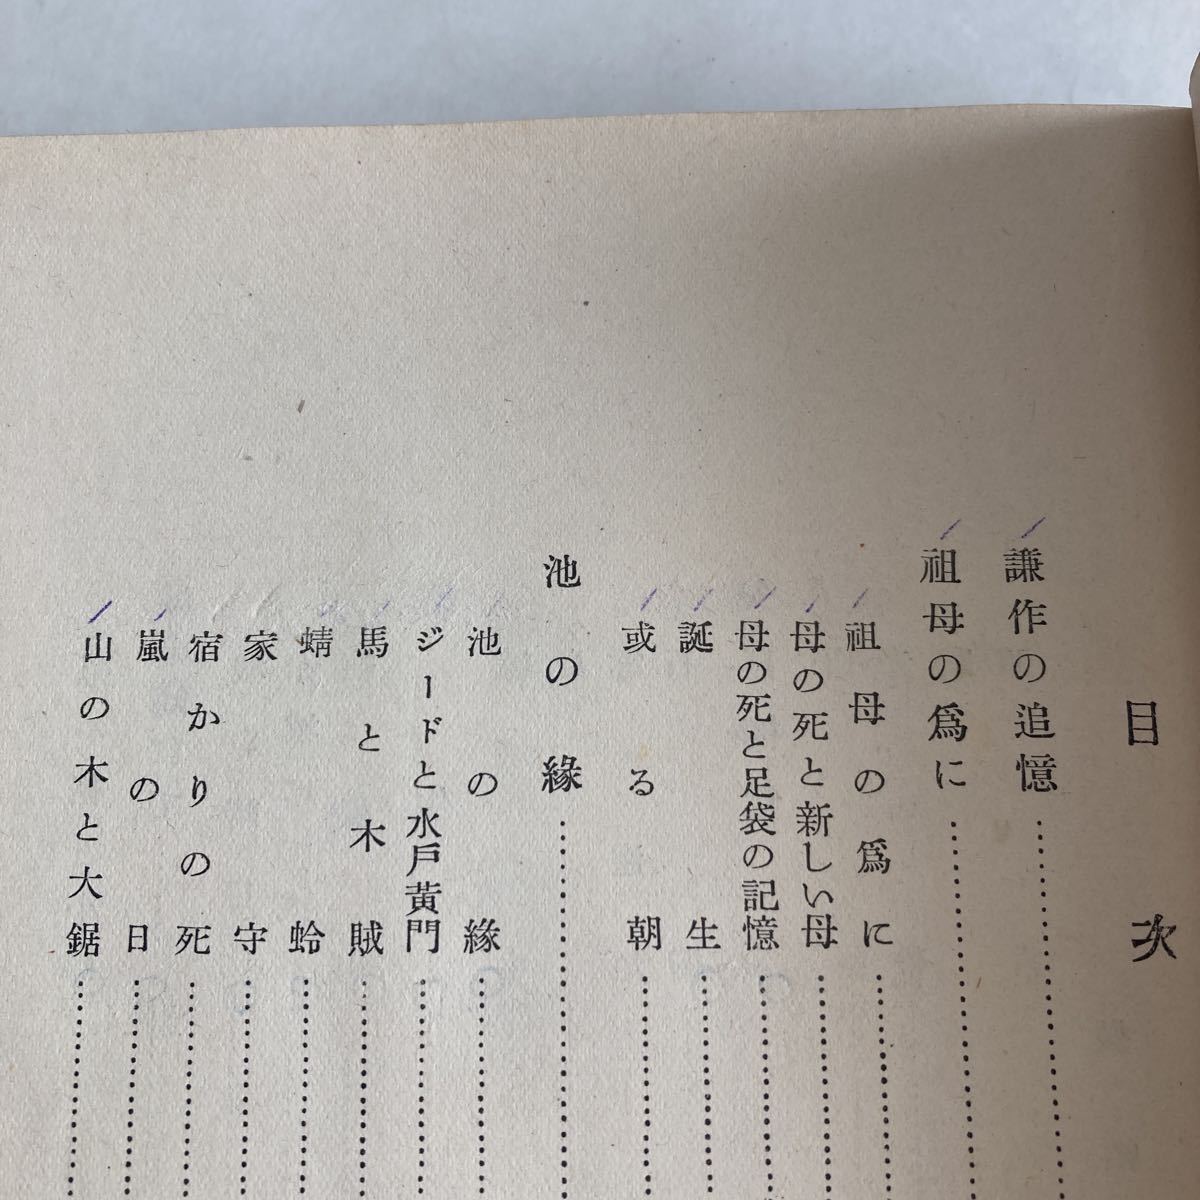 目次
謙作の追憶
祖母の爲に
祖母の爲に
母の死と新しい母
母の死と足袋の記憶
誕生
或る朝
池の緣
池の緣
ジードと水戸黃門
馬と木賊
蜻蛉
家守
宿かりの死
嵐の日
山の木と大鋸